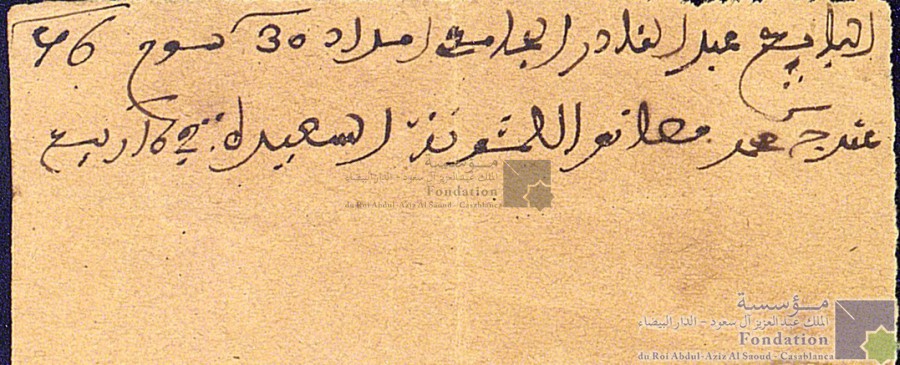 البايع عبد القادر الجامعي امداد 30 سوم 46
عند جـ محمد
السعيدة في 16 ربيع
مؤسسة
الملك عبد العزيز آل سعود - الدار البيضاء
Fondation
du Roi Abdul-Aziz Al Saoud - Casablanca
مؤسسة
الملك عبد العزيز آل سعود - الدار البيضاء
Fondation
du Roi Abdul-Aziz Al Saoud - Casablanca